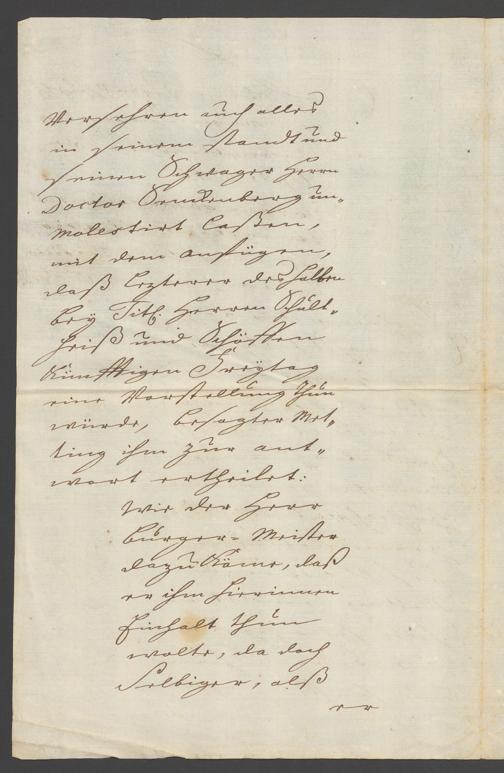 Versehren auch alles
in seinem standt und
seinen Schwager Herrn
Doctor Senckenberg un„
molestirt laßen,
mit dem anfügen,
daß lezterer deshalben
bey Titl. Herren Schult„
heiß und Schöffen
künfftigen Freytag
eine Vorstellung thun
würde, besagter Met„
ting ihm zur ant„
wort ertheilet:
Wie der Herr
burger-Meister
dazu käme, daß
er ihm hierinnen
Einhalt thun
wolte, da doch
Selbiger, alß
er